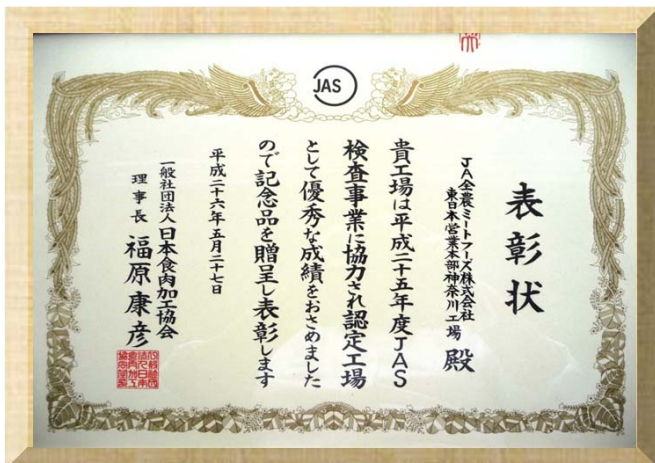 JAS
表彰状
JA全農ミートフーズ株式会社
東日本営業本部神奈川工場 殿
貴工場は平成二十五年度JAS
検査事業に協力され認定工場
として優秀な成績をおさめました
ので記念品を贈呈し表彰します
平成二十六年五月二十七日
一般社団法人日本食肉加工協会
理事長 福原康彦